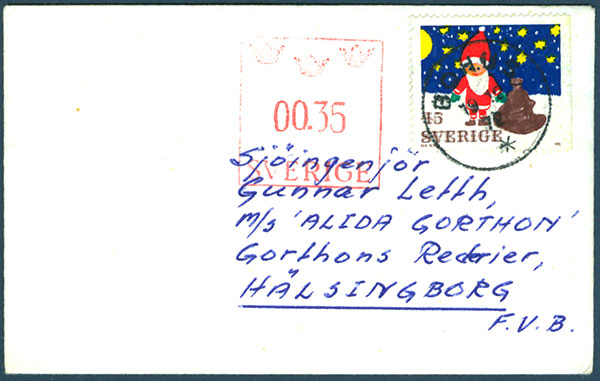 00.35
SVERIGE
45
SVERIGE
Sjöingenjör
Gunnar Letth,
m/s 'ALIDA GORTHON'
Gorthons Rederier,
HÄLSINGBORG
F.V.B.